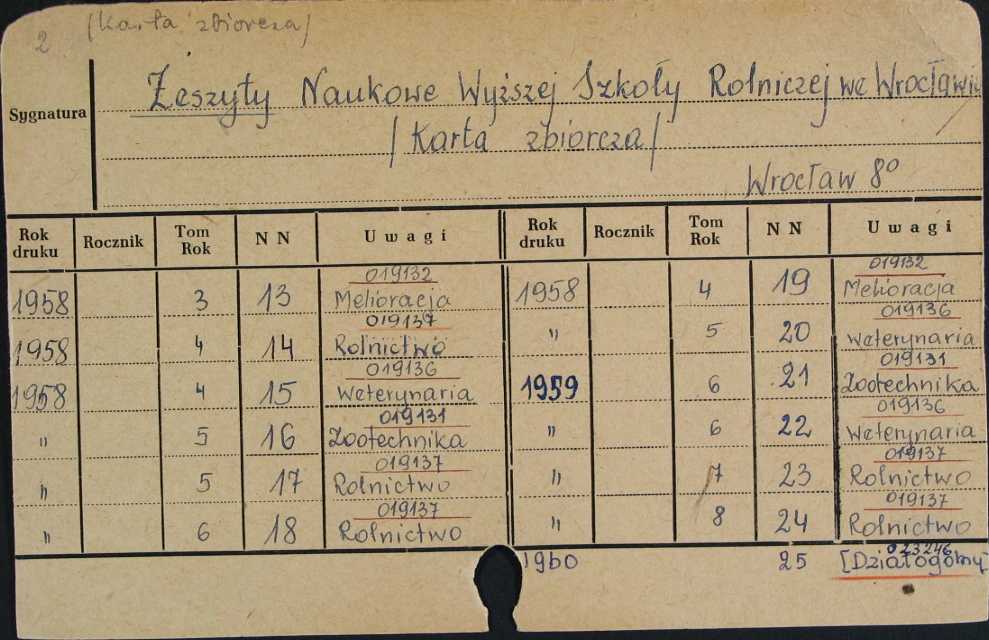 2 /Karta zbiorcza/
Sygnatura
Zeszyty Naukowe Wyższej Szkoły Rolniczej we Wrocławiu
/Karta zbiorcza/
Wrocław 8°
Rok druku Rocznik Tom Rok NN Uwagi
019132
1958 3 13 Melioracja
019137
1958 4 14 Rolnictwo
019136
1958 4 15 Weterynaria
019131
" 5 16 Zootechnika
019137
" 5 17 Rolnictwo
019137
" 6 18 Rolnictwo
Rok druku Rocznik Tom Rok NN Uwagi
019132
1958 4 19 Melioracja
019136
" 5 20 Weterynaria
019131
1959 6 21 Zootechnika
019136
" 6 22 Weterynaria
019137
" 7 23 Rolnictwo
019137
" 8 24 Rolnictwo
023246
1960 25 [Dział ogólny]